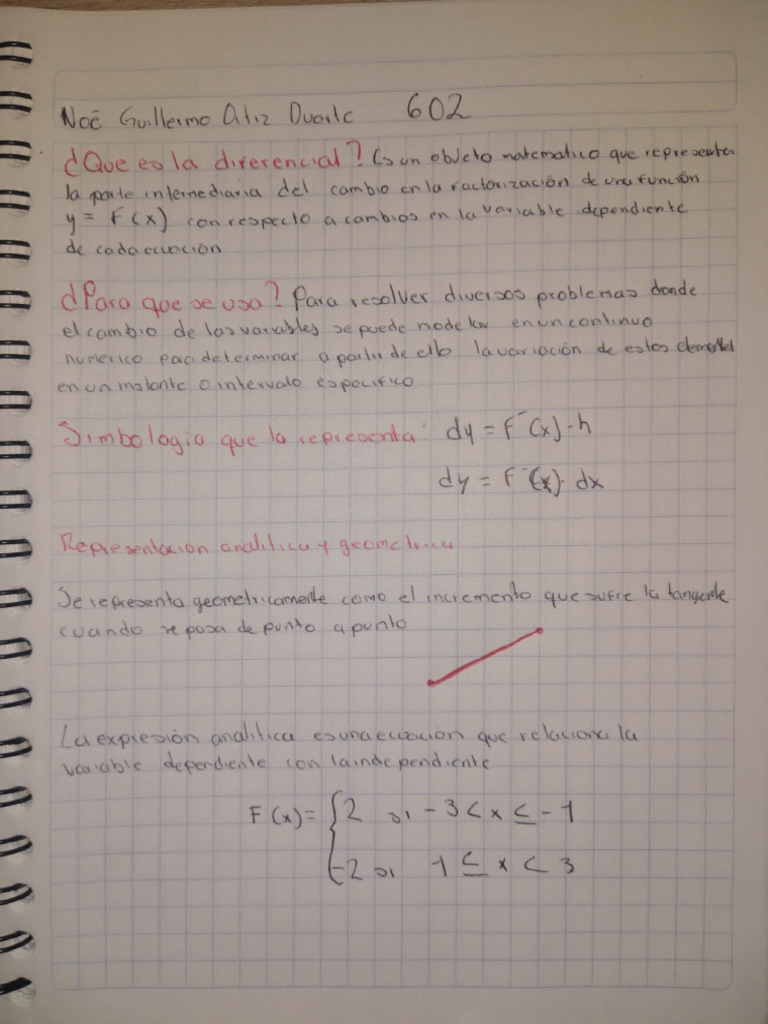 Noé Guillermo Duarte 602
¿Que es la diferencial? Es un objeto matematico que representa
la parte intermediaria del cambio en la factorización de una función
y = F(x) con respecto a cambios en la variable dependiente
de cada ecuación
¿Para que se usa? Para resolver diversos problemas donde
el cambio de las variables se puede modelar en un continuo
numerico para determinar a partir de ello la variación de estos elementos
en un instante o intervalo especifico
Simbologia que la representa dy = F´(x)·h
dy = F´(x)· dx
Representacion analitica y geometrica
Se representa geometricamente como el incremento que sufre la tangente
cuando se pasa de punto a punto
La expresión analitica es una ecuación que relaciona la
variable dependiente con la independiente
F(x) = { 2 si -3 < x ≤ -1
-2 si 1 ≤ x < 3